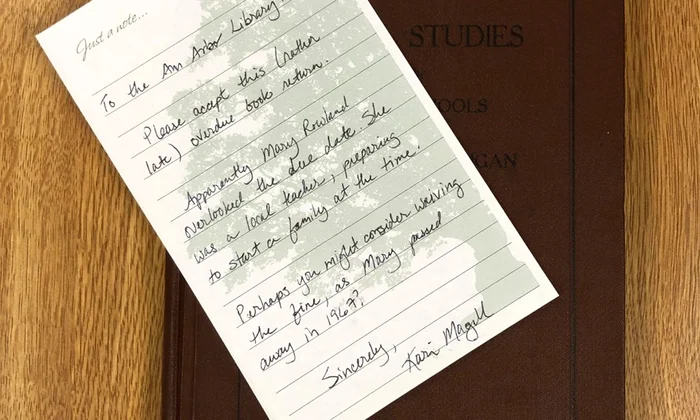 Just a note...
To the Ann Arbor Library:
Please accept this (rather
late) overdue book return.
Apparently Mary Rowland
overlooked the due date. She
was a local teacher, preparing
to start a family at the time.
Perhaps you might consider waiving
the fine, as Mary passed
away in 1967?
Sincerely,
Kari Magill
STUDIES
OOLS
GAN